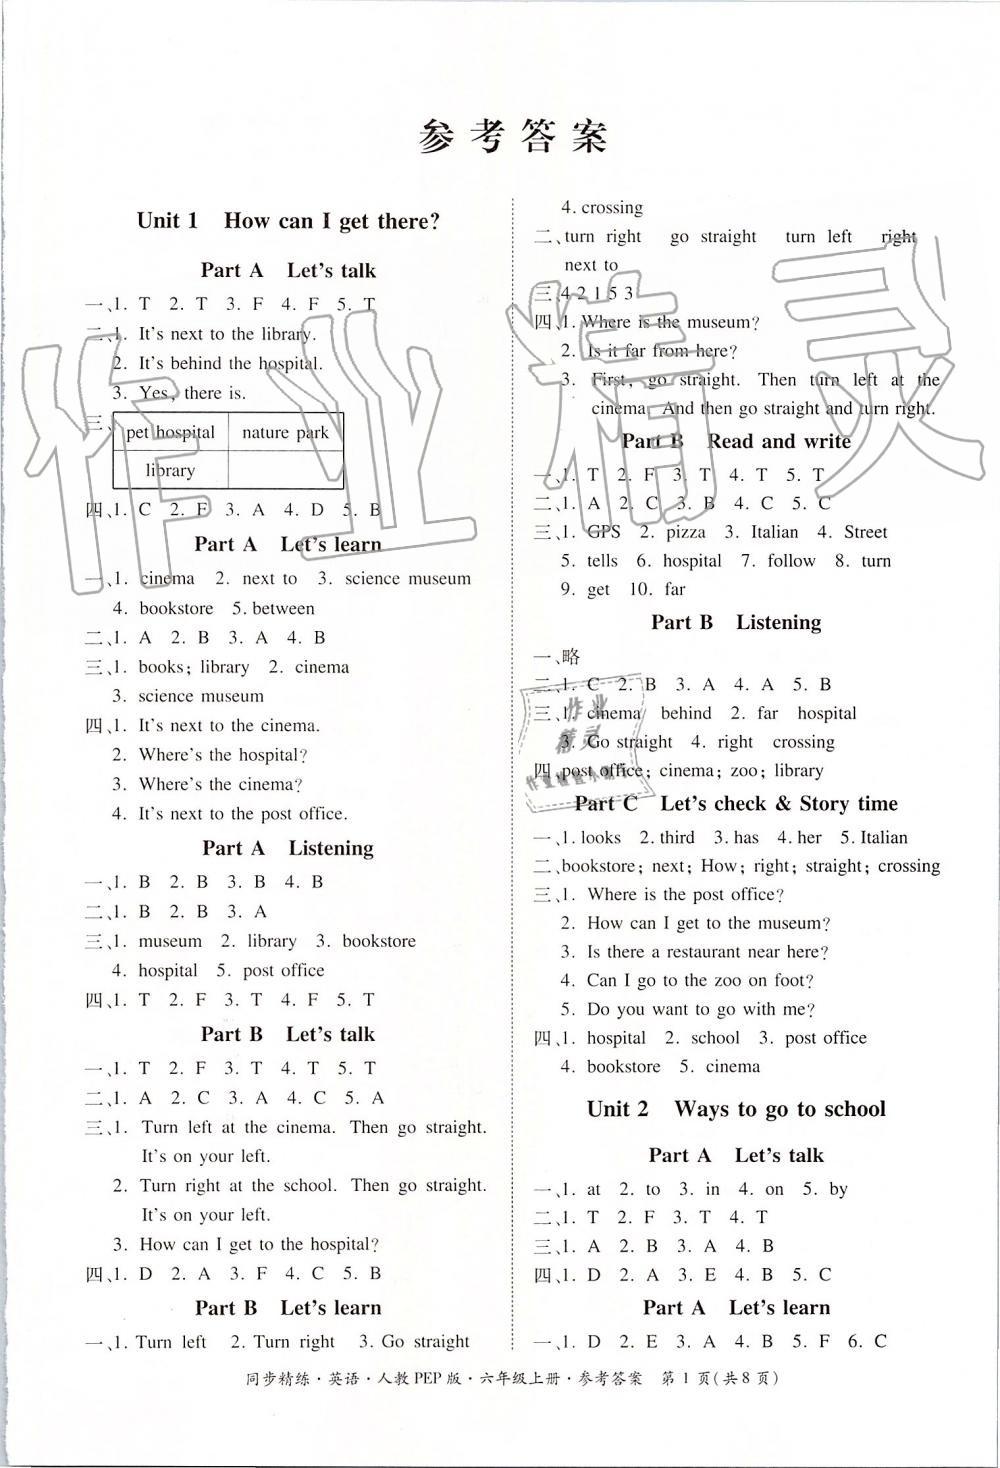 参考答案
Unit 1 How can I get there?
Part A Let's talk
一、1. T 2. T 3. F 4. F 5. T
二、1. It's next to the library.
2. It's behind the hospital.
3. Yes, there is.
三、
pet hospital nature park
library
四、1. C 2. F 3. A 4. D 5. B
Part A Let's learn
一、1. cinema 2. next to 3. science museum
4. bookstore 5. between
二、1. A 2. B 3. A 4. B
三、1. books; library 2. cinema
3. science museum
四、1. It's next to the cinema.
2. Where's the hospital?
3. Where's the cinema?
4. It's next to the post office.
Part A Listening
一、1. B 2. B 3. B 4. B
二、1. B 2. B 3. A
三、1. museum 2. library 3. bookstore
4. hospital 5. post office
四、1. T 2. F 3. T 4. F 5. T
Part B Let's talk
一、1. T 2. F 3. T 4. T 5. T
二、1. A 2. C 3. A 4. C 5. A
三、1. Turn left at the cinema. Then go straight.
It's on your left.
2. Turn right at the school. Then go straight.
It's on your left.
3. How can I get to the hospital?
四、1. D 2. A 3. F 4. C 5. B
Part B Let's learn
一、1. Turn left 2. Turn right 3. Go straight
4. crossing
二、turn right go straight turn left right
next to
三、4 2 1 5 3
四、1. Where is the museum?
2. Is it far from here?
3. First, go straight. Then turn left at the
cinema. And then go straight and turn right.
Part B Read and write
一、1. T 2. F 3. T 4. T 5. T
二、1. A 2. C 3. B 4. C 5. C
三、1. GPS 2. pizza 3. Italian 4. Street
5. tells 6. hospital 7. follow 8. turn
9. get 10. far
Part B Listening
一、略
二、1. C 2. B 3. A 4. A 5. B
三、1. cinema behind 2. far hospital
3. Go straight 4. right crossing
四、post office; cinema; zoo; library
Part C Let's check & Story time
一、1. looks 2. third 3. has 4. her 5. Italian
二、bookstore; next; How; right; straight; crossing
三、1. Where is the post office?
2. How can I get to the museum?
3. Is there a restaurant near here?
4. Can I go to the zoo on foot?
5. Do you want to go with me?
四、1. hospital 2. school 3. post office
4. bookstore 5. cinema
Unit 2 Ways to go to school
Part A Let's talk
一、1. at 2. to 3. in 4. on 5. by
二、1. T 2. F 3. T 4. T
三、1. A 2. B 3. A 4. B
四、1. D 2. A 3. E 4. B 5. C
Part A Let's learn
一、1. D 2. E 3. A 4. B 5. F 6. C
同步精练·英语·人教PEP版·六年级上册·参考答案 第1页(共8页)
作业精灵
作业
精灵